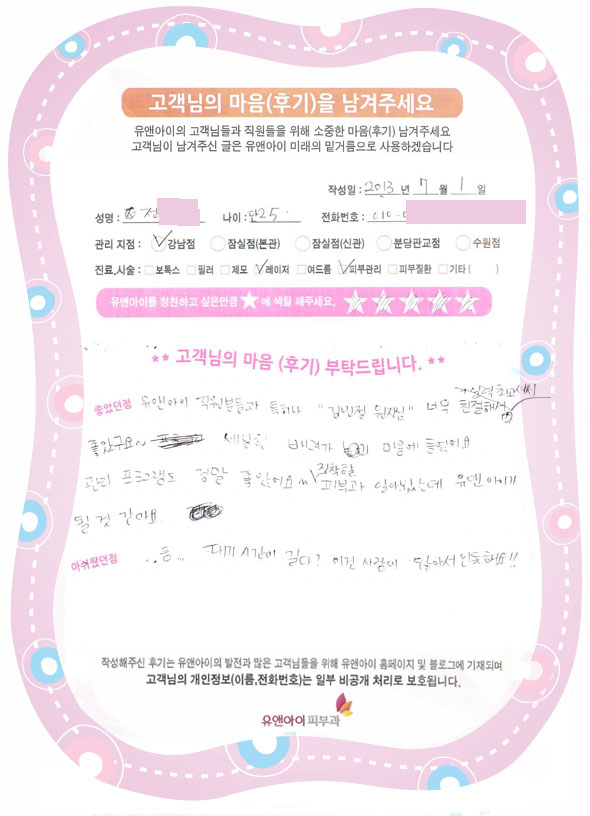 고객님의 마음(후기)을 남겨주세요
유앤아이의 고객님들과 직원들을 위해 소중한 마음(후기) 남겨주세요
고객님이 남겨주신 글은 유앤아이 미래의 밑거름으로 사용하겠습니다
작성일 : 2013 년 7 월 1 일
성명 : 전 나이 : 만25. 전화번호 :
관리 지점 : 강남점 잠실점(본관) 잠실점(신관) 분당판교점 수원점
진료,시술 : 보톡스 필러 제모 레이저 여드름 피부관리 피부질환 기타 ( )
유앤아이를 칭찬하고 싶은만큼 ★ 에 색칠 해주세요.
** 고객님의 마음 (후기) 부탁드립니다. **
실력 최고세씨
좋았던점 유앤아이 직원분들과 특히나 "김민정 원장님" 너무 친절해서
좋았구요~ 세심한 배려가 마음에 들었어요
정착할
관리 프로그램도 정말 좋았어요 ~ 피부과 알아봤는데 유앤아이가
될 것 같아요.
아쉬웠던점 ..음... 대기시간이 길다? 이건 사람이 많아서 인듯해요!!
작성해주신 후기는 유앤아이의 발전과 많은 고객님들을 위해 유앤아이 홈페이지 및 블로그에 기재되며
고객님의 개인정보(이름,전화번호)는 일부 비공개 처리로 보호됩니다.
유앤아이피부과